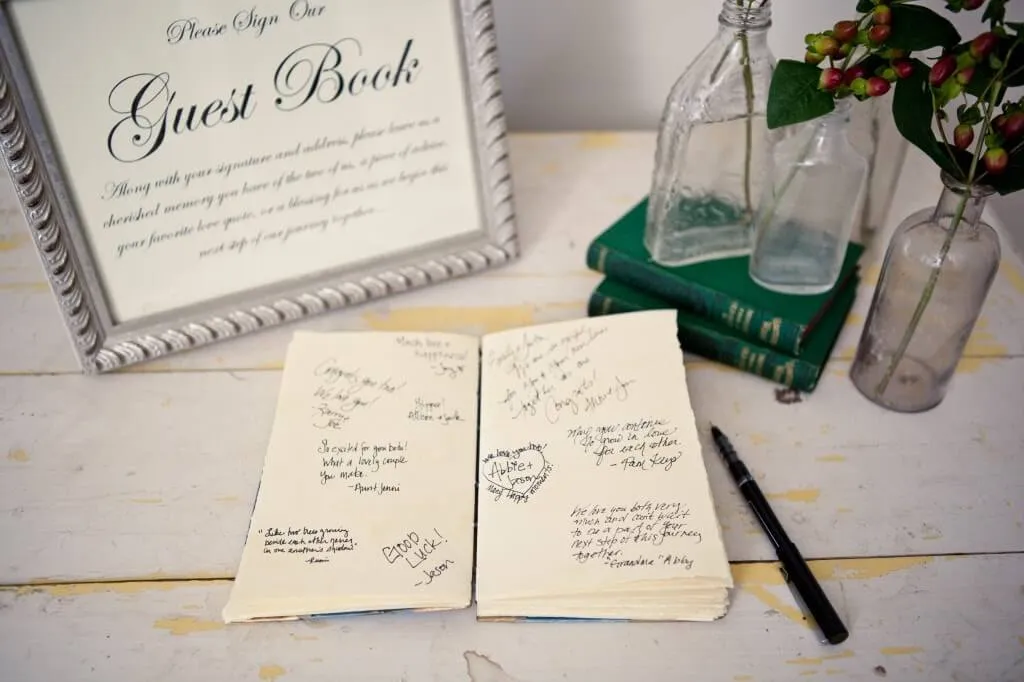 Please Sign Our
Guest Book
Along with your signature and address, please leave us a
cherished memory you have of the two of us, a piece of advice,
your favorite love quote, or a blessing for us as we begin this
next step of our journey together...
Much love +
happiness!
Congrats you two!
We love you!
Yippee!
So excited for you both!
What a lovely couple
you make.
-Aunt Jenni
"Like two trees growing
beside each other never
in one another's shadow"
Good
Luck!
-Jason
together as one
Congrats!
we love you two!
Abbie +
Jason
Many happy moments!
May you continue
to grow in love
for each other
- Pam Keys
We love you both very
much and can't wait
to be a part of your
next step of this journey
together.
-Grandma "Abby